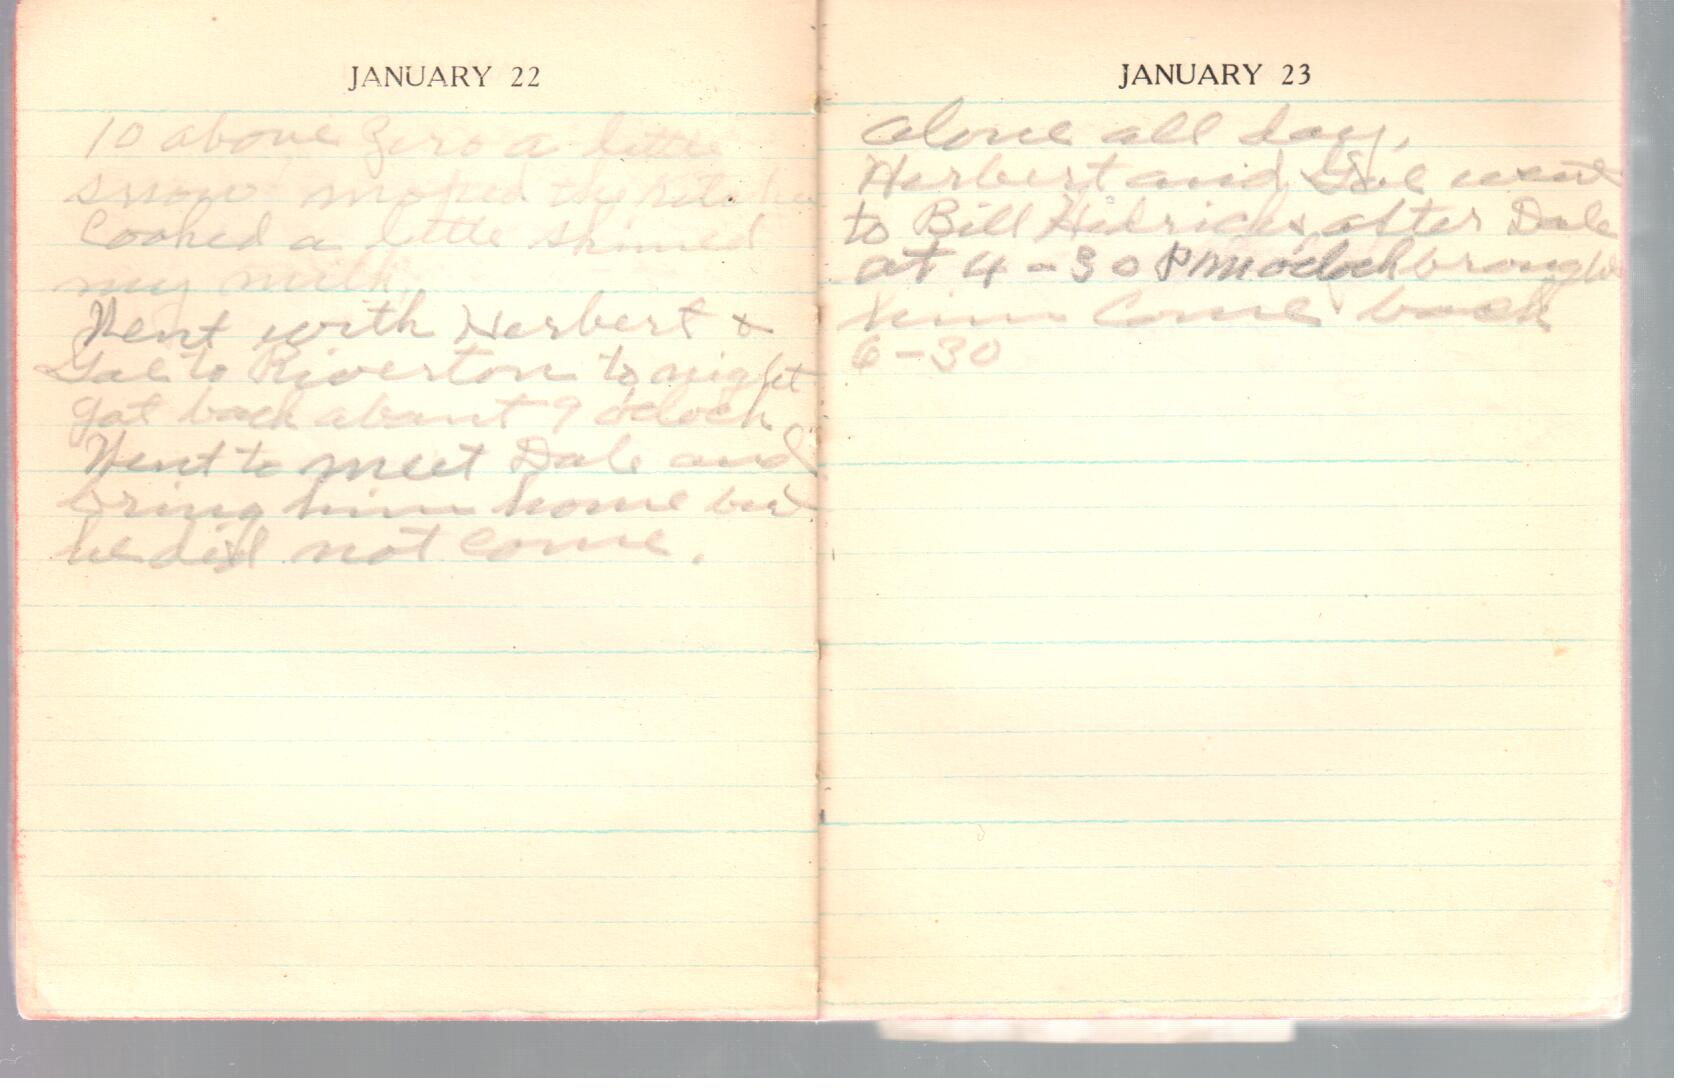 JANUARY 22
10 above Zero a little
snow moped the kitchen
Cooked a little skimed
my milk.
Went with Herbert &
Gae to Riverton to night
got back about 9 oclock
Went to meet Dale and
bring him home but
he did not come.
JANUARY 23
alone all day.
Herbert and Gae went
to Bill Hidricks after Dale
at 4-30 PM oclock brought
him Come back
6-30